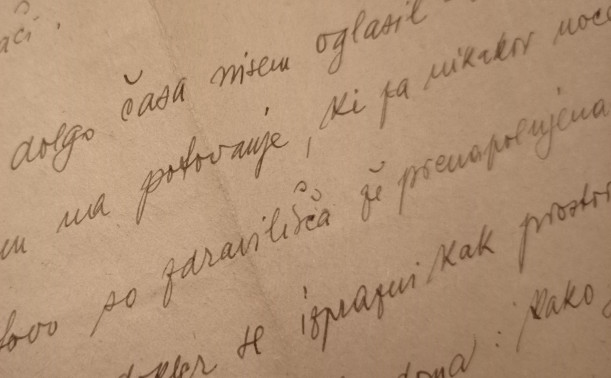 dolgo časa nisem oglasil
na potovanje, ki pa nikakor noče
so zdravilišča že prenapolnjena
se izprazni kak prostor
: Kako